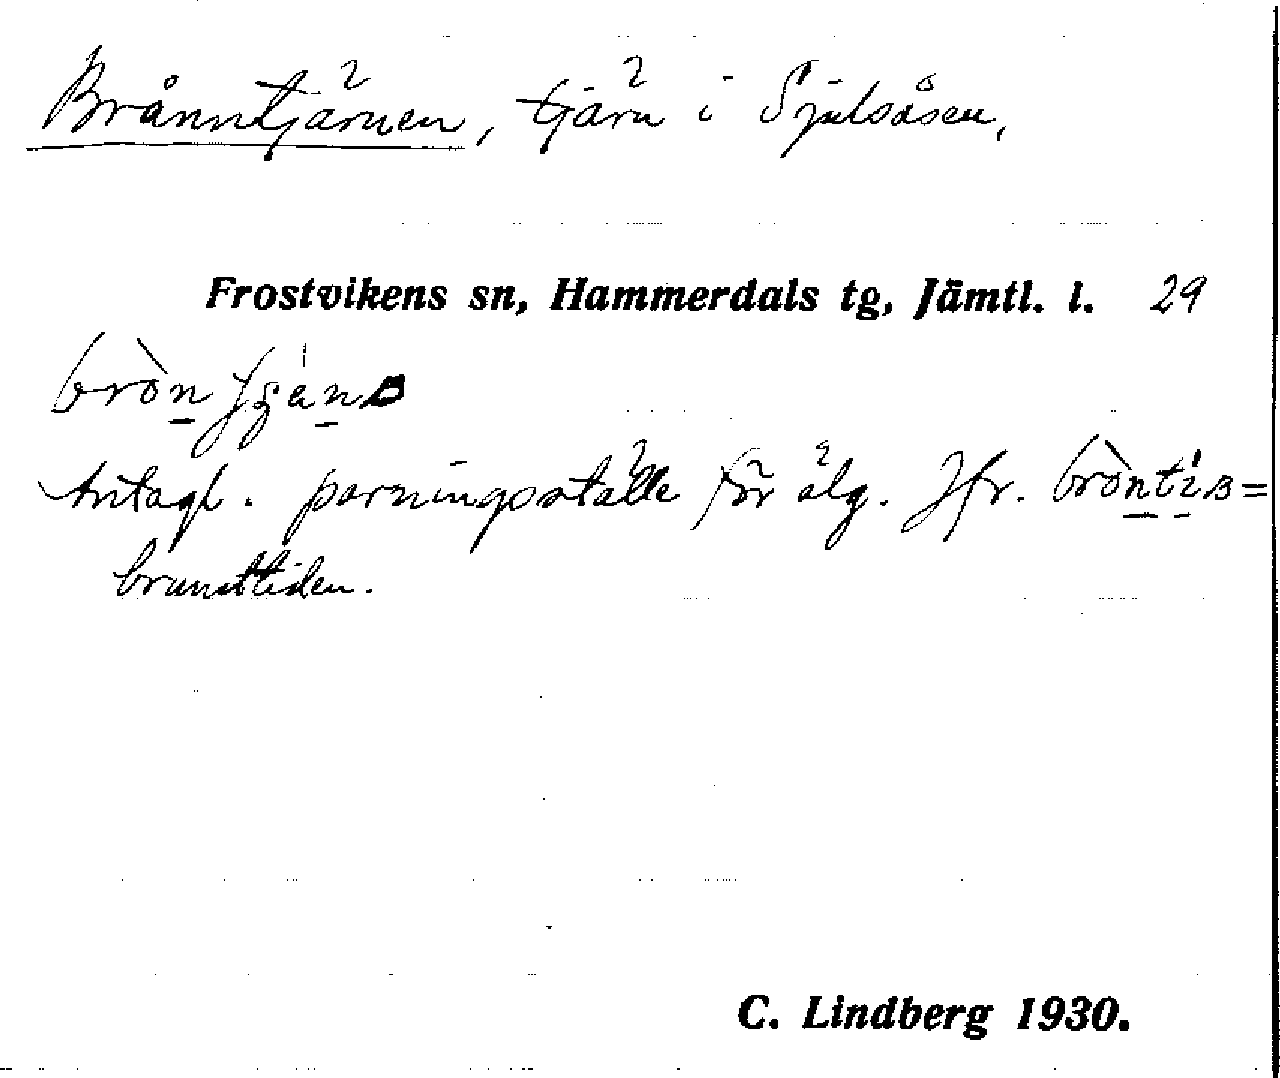 Brånntjärnen, tjärn i Sjulsåsen,
Frostvikens sn, Hammerdals tg, Jämtl. l. 29
Antagl. parningsställe för älg. Jfr. =
brunsttiden.
C. Lindberg 1930.